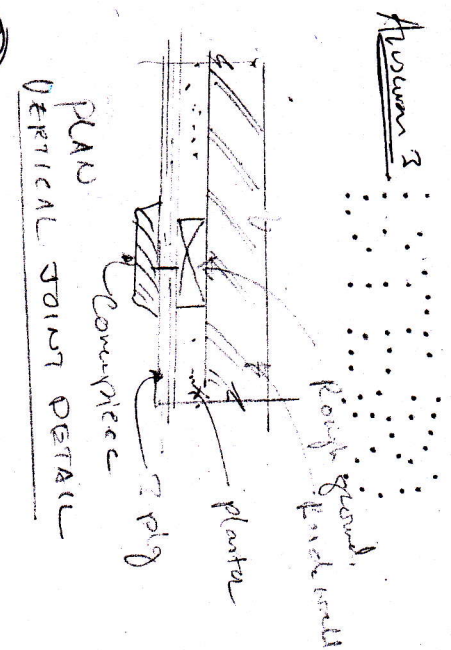 Answer 3
Rough ground
plaster
3 ply
Coverpiece
PLAN
VERTICAL JOINT DETAIL